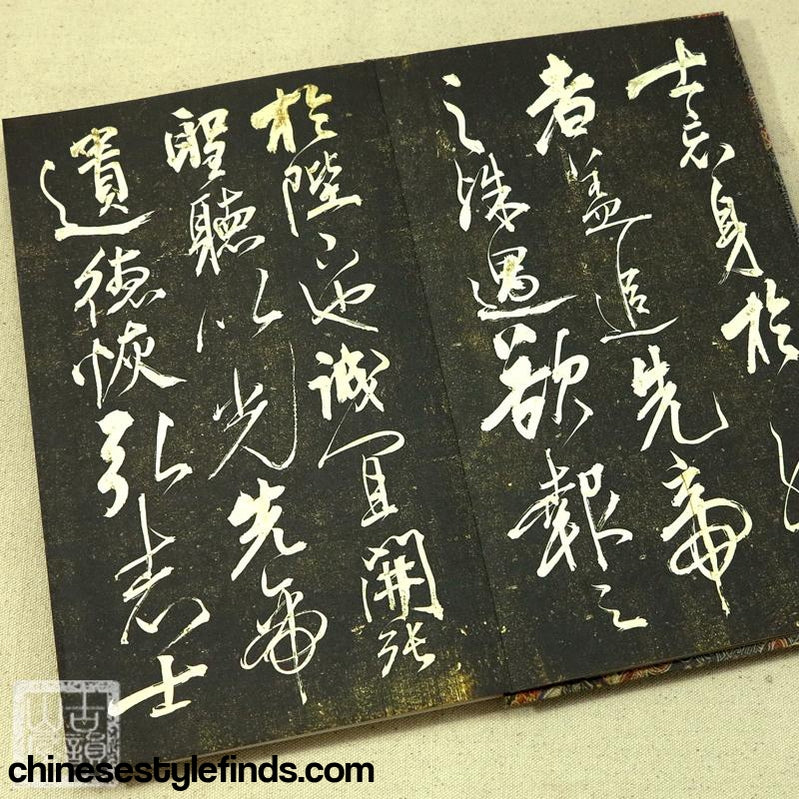 士忘身於
者盖追先帝
之殊遇欲報之
於陛下也誠宜開张
聖聽以光先帝
遺德恢弘志士
chinesestylefinds.com